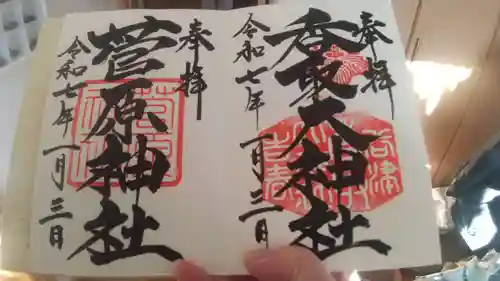 奉拝
香取大神社
令和七年一月三日
奉拝
菅原神社
令和七年一月三日